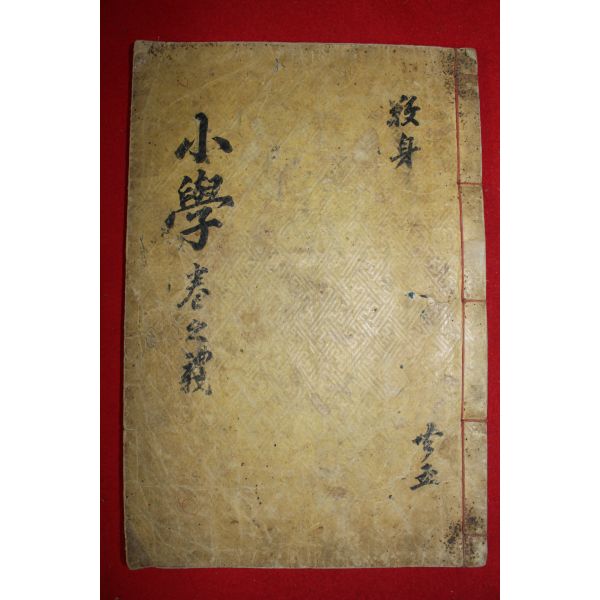 敬身
共五
小學卷之義